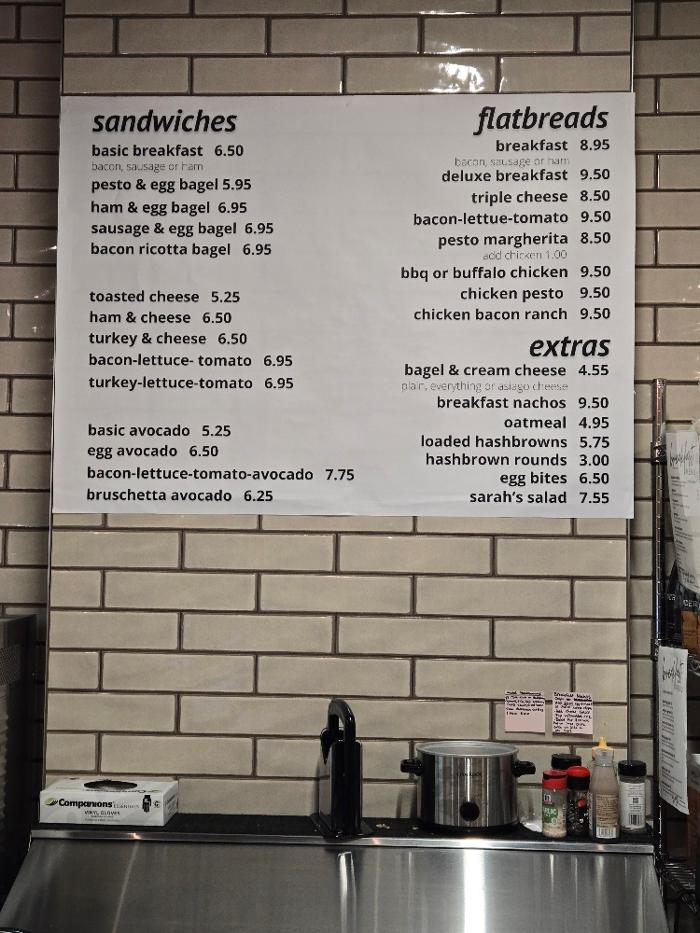 sandwiches
basic breakfast 6.50
bacon, sausage or ham
pesto & egg bagel 5.95
ham & egg bagel 6.95
sausage & egg bagel 6.95
bacon ricotta bagel 6.95
toasted cheese 5.25
ham & cheese 6.50
turkey & cheese 6.50
bacon-lettuce- tomato 6.95
turkey-lettuce-tomato 6.95
basic avocado 5.25
egg avocado 6.50
bacon-lettuce-tomato-avocado 7.75
bruschetta avocado 6.25
flatbreads
breakfast 8.95
bacon, sausage or ham
deluxe breakfast 9.50
triple cheese 8.50
bacon-lettue-tomato 9.50
pesto margherita 8.50
add chicken 1.00
bbq or buffalo chicken 9.50
chicken pesto 9.50
chicken bacon ranch 9.50
extras
bagel & cream cheese 4.55
plain, everything or asiago cheese
breakfast nachos 9.50
oatmeal 4.95
loaded hashbrowns 5.75
hashbrown rounds 3.00
egg bites 6.50
sarah's salad 7.55
Companions
VINYL GLOVES